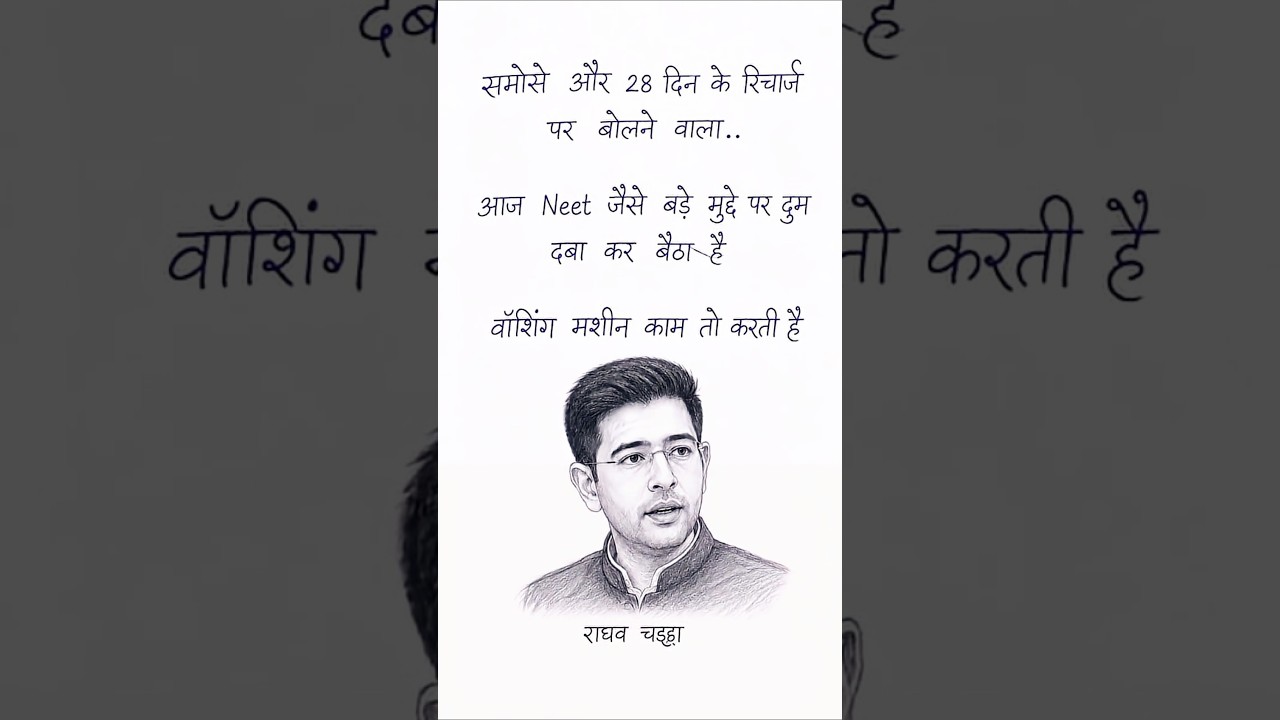 समोसे और 28 दिन के रिचार्ज
पर बोलने वाला..
आज Neet जैसे बड़े मुद्दे पर दुम
दबा कर बैठा है
वॉशिंग मशीन काम तो करती है
राघव चड्ढा